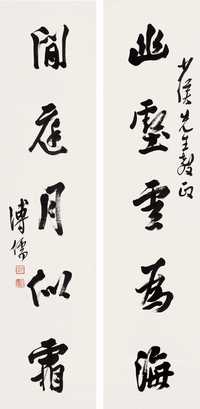 幽壑雲為海
少濱先生教正
閒庭月似霜
溥儒